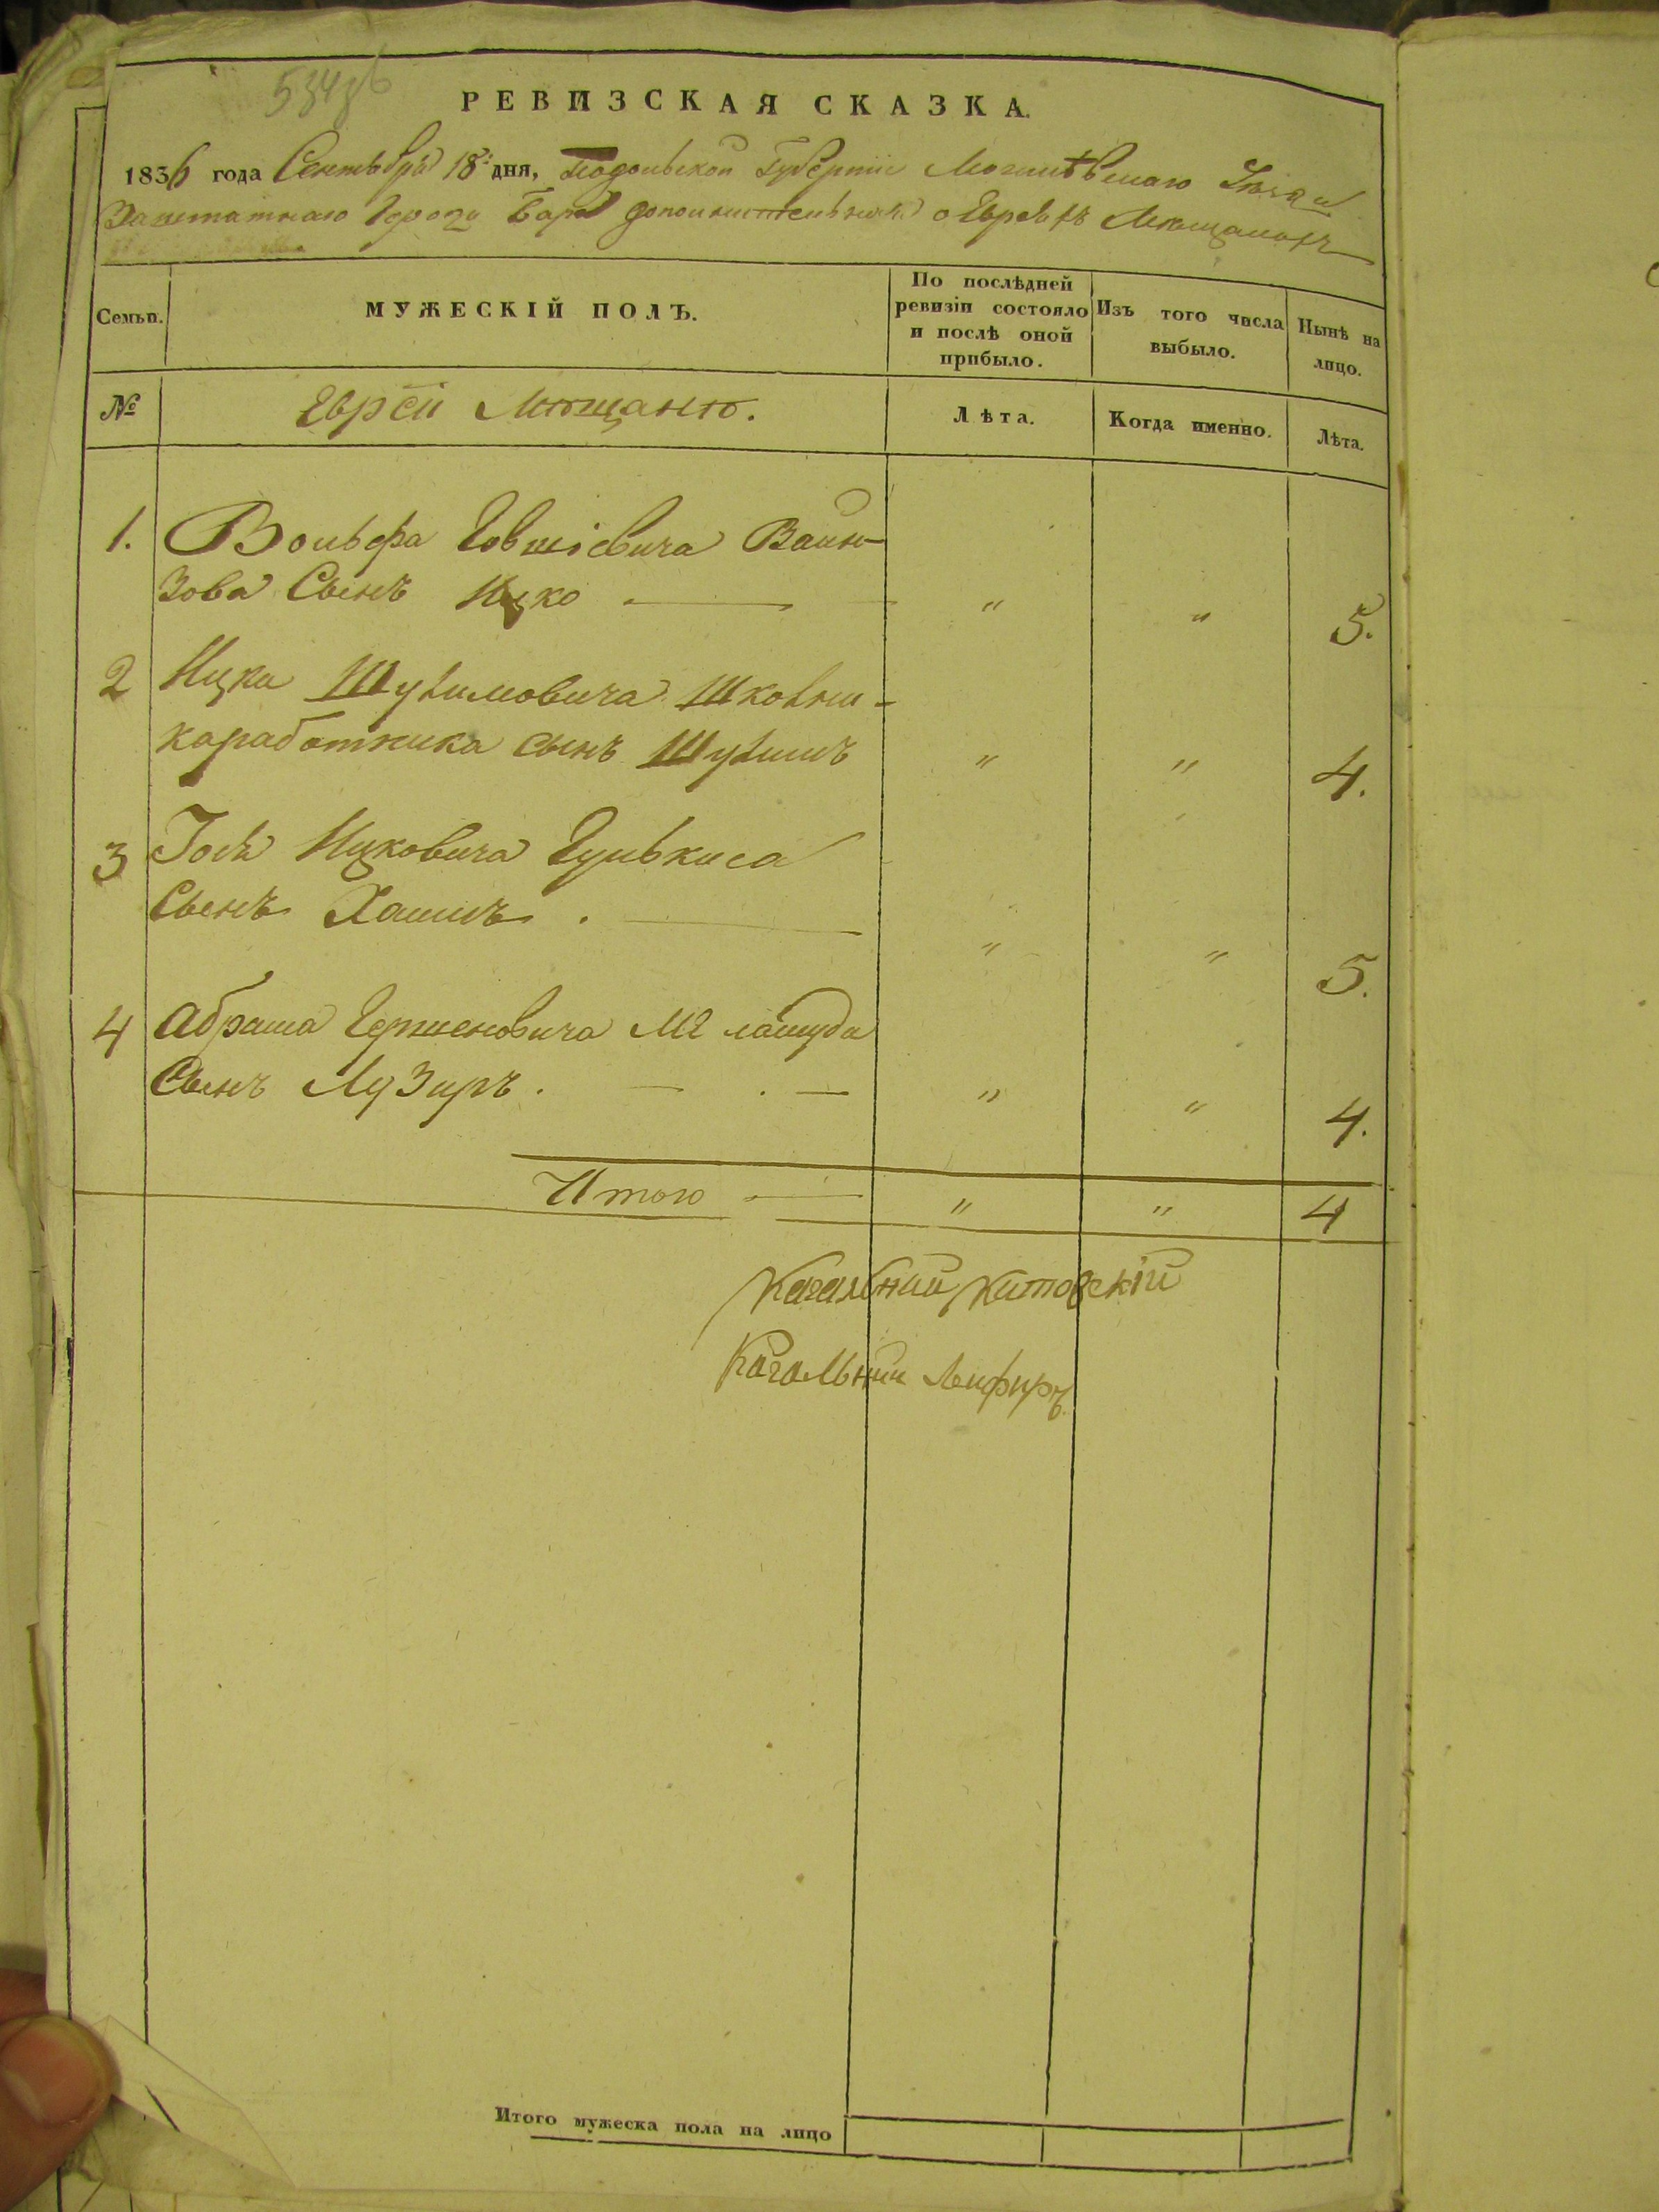 534
РЕВИЗСКАЯ СКАЗКА.
1836 года Сентября 18 дня, Подольской Губерніи Могилевскаго Уѣзда
Заштатнаго Города Бара дополнительная о Евреяхъ Мѣщанахъ
Семьи.
МУЖЕСКІЙ ПОЛЪ.
По послѣдней
ревизіи состояло
и послѣ оной
прибыло.
Изъ того числа
выбыло.
Нынѣ на
лицо.
№
Евреи Мѣщане.
Лѣта.
Когда именно.
Лѣта.
1. Вольфа Говшіевича Вайн-
зова Сынъ Ицко " " 5.
2 Ицка Шулимовича Школьни-
каработника сынъ Шулимъ " " 4.
3 Іося Ицковича Гулькиса
Сынъ Хаимъ . " " 5.
4 Абрама Гершковича
Сынъ Лузиръ . " " 4.
Итого " " 4
Кагальний Китовскій
Кагальний Лифиръ
Итого мужеска пола на лицо